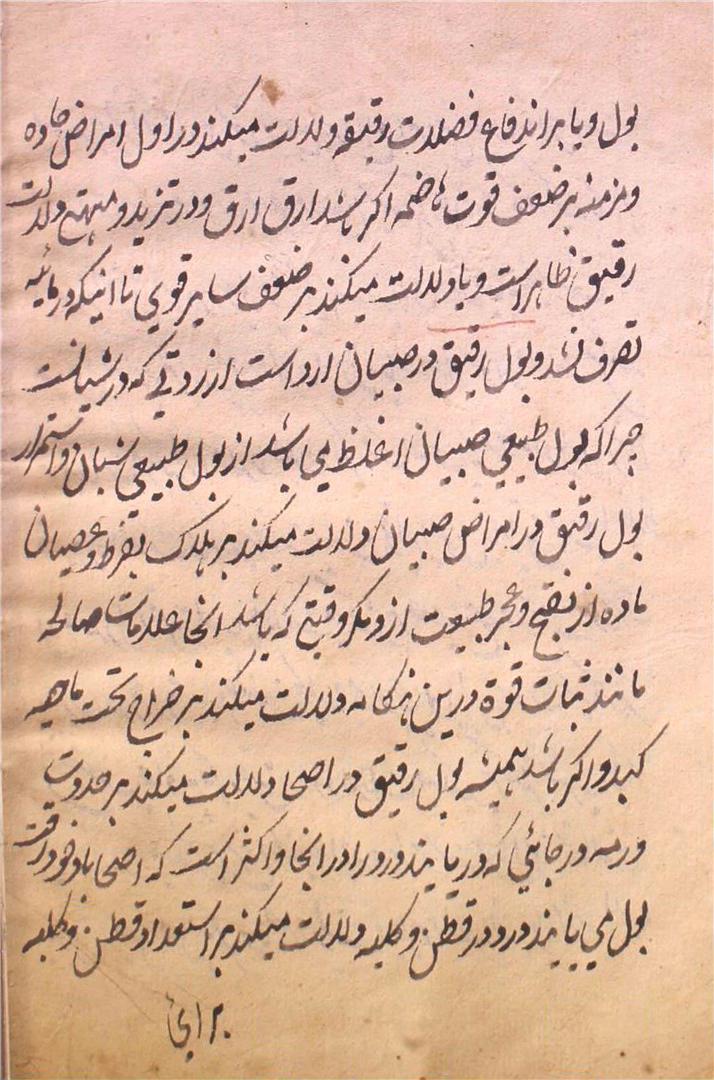 بول و یا بر اندفاع فضلات رقیقه و دلالت میکند در اول امراض حاده
و مزمنه بر ضعف قوت هاضمه اکر باشد ارق ارق و در تزید و منتهی دلالت
رقیق ظاهر است و یا دلالت میکند بر ضعف سایر قوی تا اینکه در مائیه
تصرف نشد و بول رقیق در صبیان اردا است از رقتی که در شبانست
چرا که بول طبیعی صبیان اغلظ می باشد از بول طبیعی شبان و استمرار
بول رقیق در امراض صبیان دلالت میکند بر هلاک بفرط عصیان
ماده از نضج و عجز طبیعت ازو مکر وقتی که باشد انجا علامات صالحه
مانند ثبات قوة درین هنکام دلالت میکند بر خراج تحت ماهیه
کبد و اکر باشد همیشه بول رقیق در اصحا دلالت میکند بر حدوث
ورمه در جائی که در یابند درد را در انجا و اکثر است که اصحا باوجود رقت
بول می یابند درد در قطن و کلیه دلالت میکند بر استعداد قطن و کلیه
برای